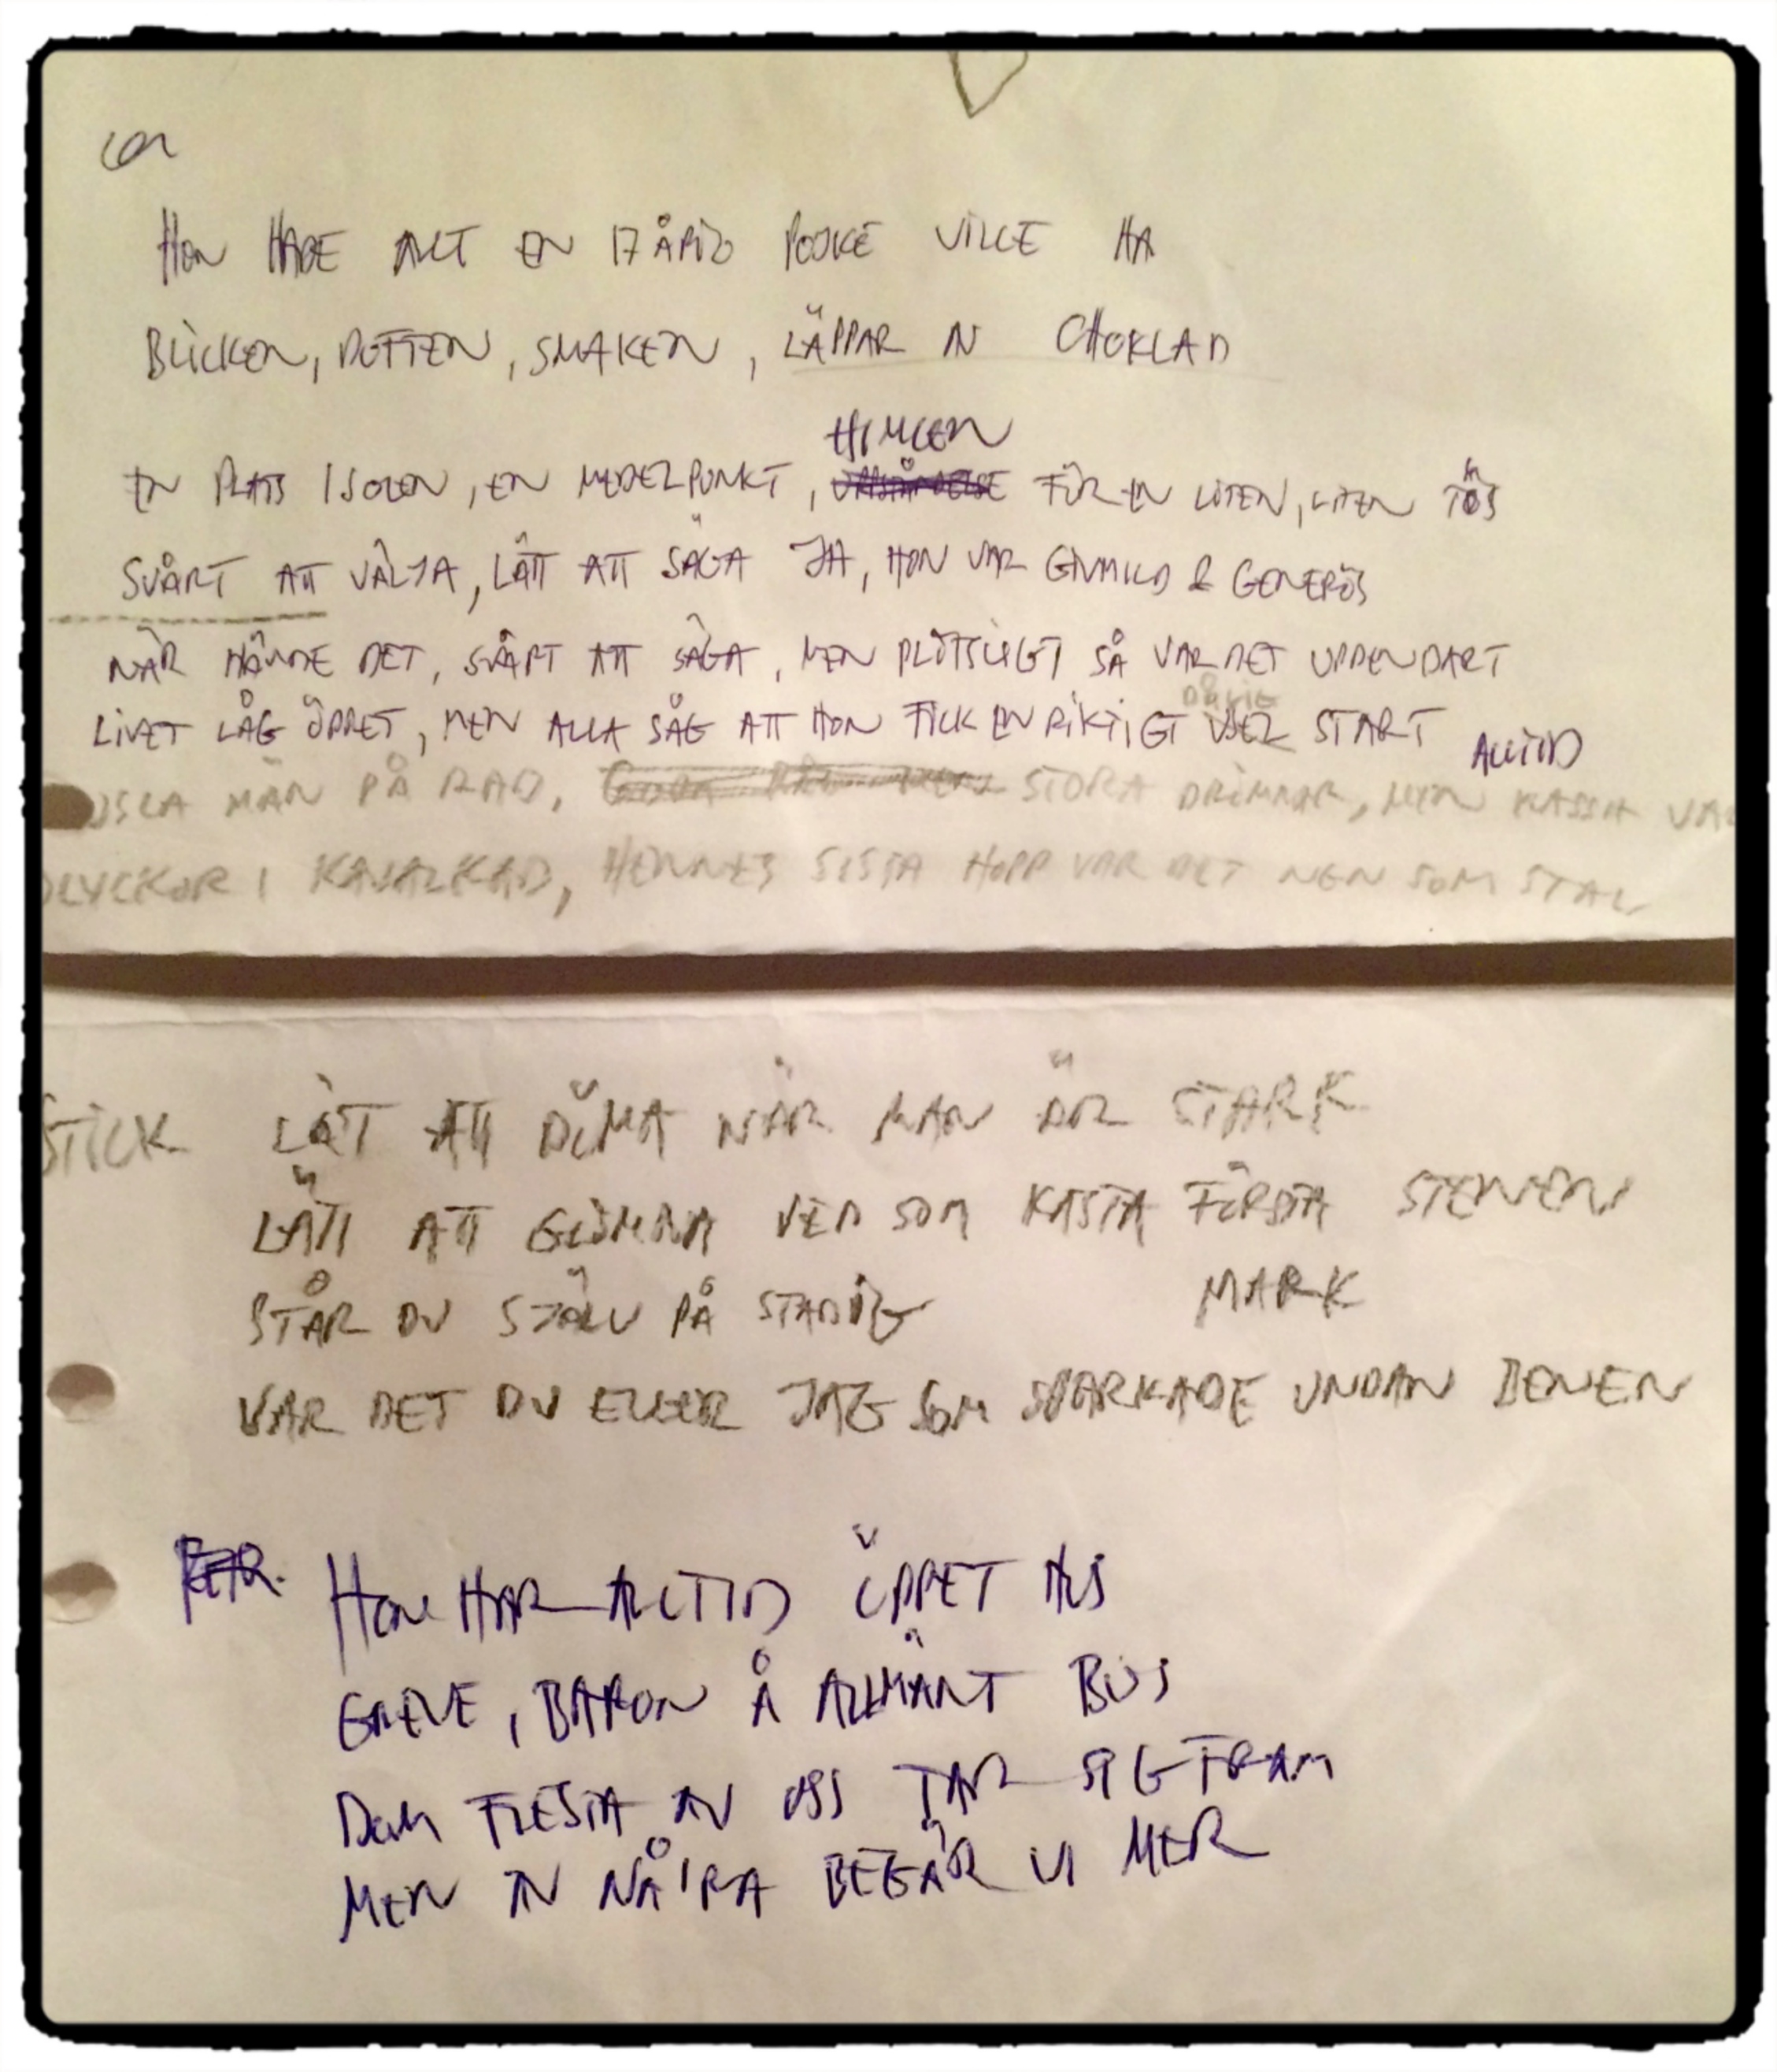 HON HADE ALLT EN 17 ÅRIG POJKE VILLE HA
BLICKEN, DOFTEN, SMAKEN, LÄPPAR AV CHOKLAD
HIMLEN
EN PLATS I SOLEN, EN MEDELPUNKT, FÖR EN LITEN, LITEN TÖS
SVÅRT ATT VÄLJA, LÄTT ATT SÄGA JA, HON VAR GIVMILD & GENERÖS
NÄR HÄNDE DET, SVÅRT ATT SÄGA, MEN PLÖTSLIGT SÅ VAR DET UPPENBART
DÅLIG
LIVET LÅG ÖPPET, MEN ALLA SÅG ATT HON FICK EN RIKTIGT START
ALLTID
USLA MÄN PÅ RAD, STORA DRÖMMAR, MEN KASSA VAL
OLYCKOR I KAVALKAD, HENNES SISTA HOPP VAR DET NGN SOM STAL
STICK LÄT ATT DÖMA NÄR MAN ÄR STARK
LÄTT ATT GLÖMMA VEM SOM KASTA FÖRSTA STENEN
STÅR DU SJÄLV PÅ STADIG MARK
VAR DET DU ELLER JAG SOM SPARKADE UNDAN BENEN
REFR. HON HAR ALLTID ÖPPET HUS
GREVE, BARON Å ALLMÄNT BUS
DOM FLESTA AV OSS TAR SIG FRAM
MEN AV NÅ'RA BEGÄR VI MER